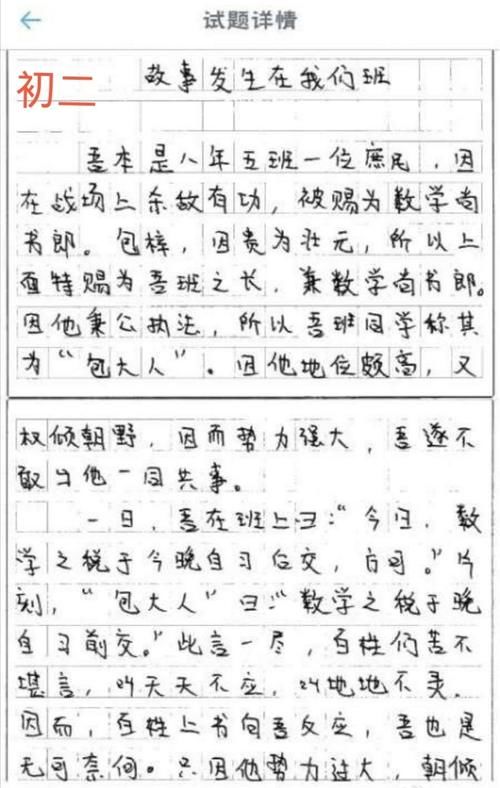 试题详情
初二
故事发生在我们班
吾本是八年五班一位庶民，因
在战场上杀敌有功，被赐为数学尚
书郎。包梓，因贵为壮元，所以上
面特赐为吾班之长，兼数学尚书郎。
因他秉公执法，所以吾班同学称其
为“包大人”。因他地位颇高，又
权倾朝野，因而势力强大，吾遂不
敢与他一同共事。
一日，吾在班上曰：“今日，数
学之税于今晚自习后交，方可。”片
刻，“包大人”曰：“数学之税于晚
自习前交。”此言一尽，百姓们苦不
堪言，叫天天不应，叫地地不灵。
因而，百姓上书向吾反应，吾也是
无可奈何。只因他势力过大，朝倾